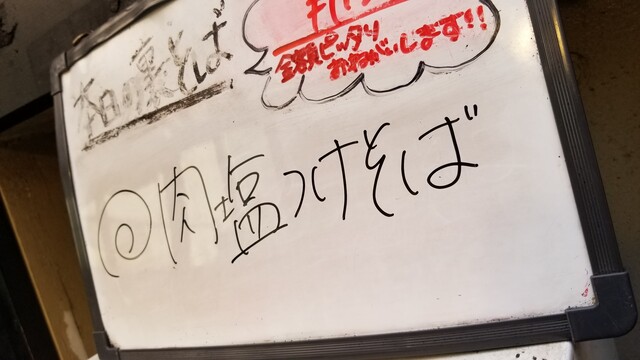 本日の裏そば
金額ピッタリ
おねがいします!!
肉塩つけそば